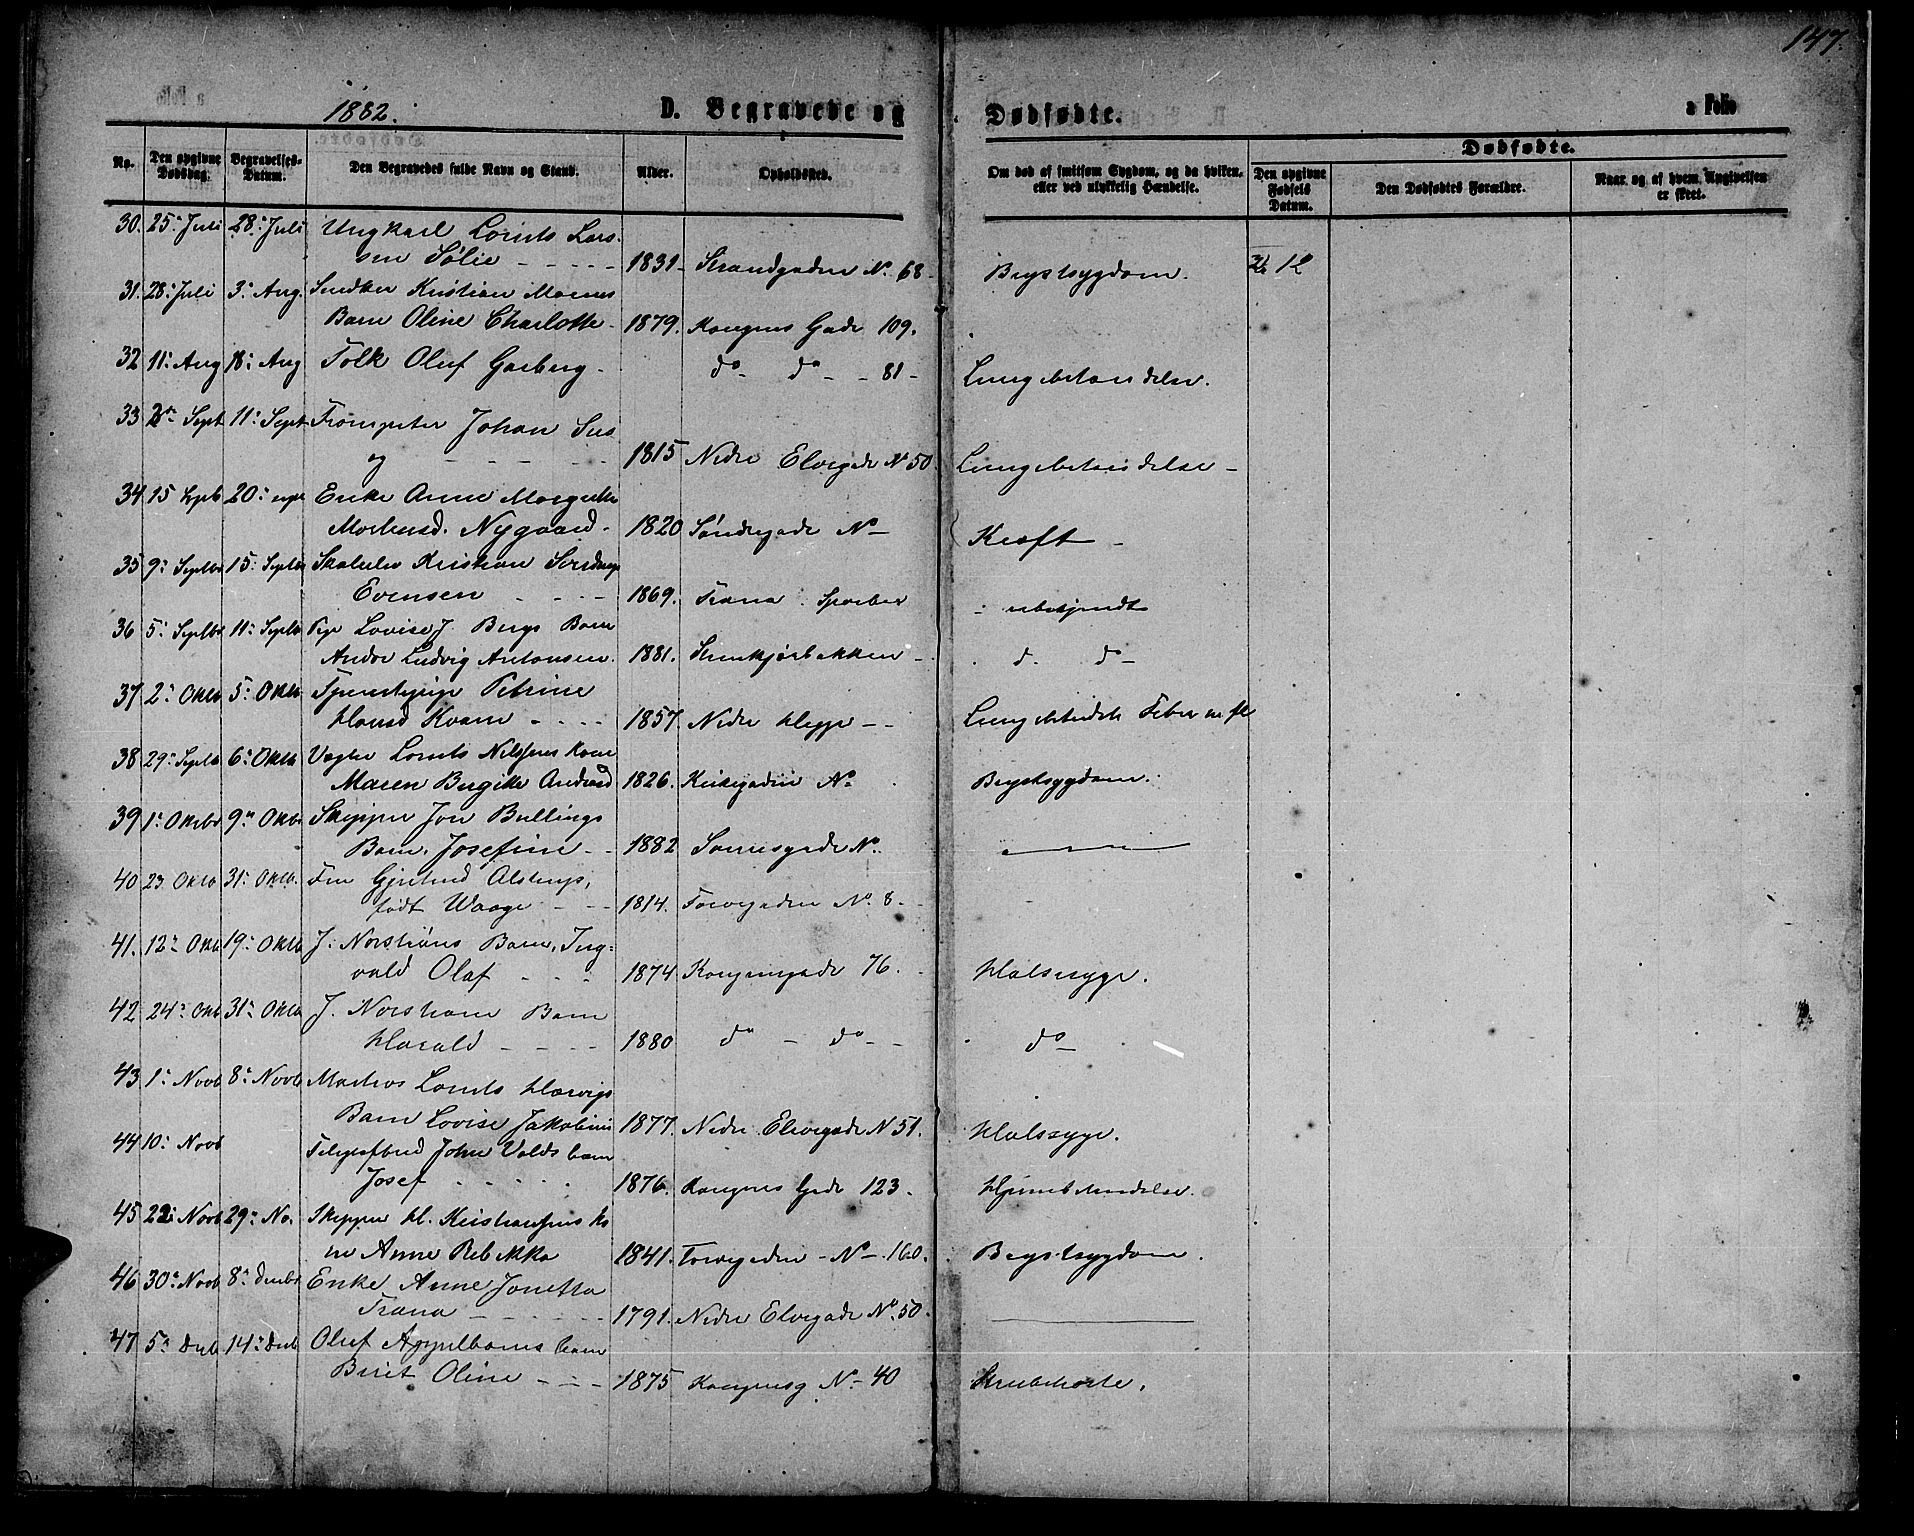 147.
1882.
D. Begravede og Dødfødte.
a Folio
No.
Den opgivne Dødsdag.
Begravelses-Datum.
Den Begravedes fulde Navn og Stand.
Alder.
Opholdssted.
Om død af smitsom Sygdom, og da hvilken, eller ved ulykkelig Hændelse.
Dødfødte.
Den opgivne Fødsels Datum.
Den Dødfødtes Forældre.
Naar og af hvem Angivelsen er skeet.
30. 25: Juli 28: Juli Ungkarl Lorents Lars-
sen Sølie - - - - 1831 - Strandgaden No. 68 - Brystsygdom. 12
31. 28: Juli 3: Aug. Snedker Kristian Moenes
Barn Oline Charlotte - 1879. Kongens Gade 109.
32 11: Aug 18: Aug Tolk Oluf Garberg - do - do - - 81 - Lungebetændelse.
33 Sept 11: Sept Trompeter Johan
- - - - 1815 Nedre Elvegade No 50 Lungebetændelse -
34 15 Septb 20: Enke Anne Margrethe
Mortensd. Nygaard - 1820 Søndregade No - Kræft -
35 9: Septbr 15: Septbr Skoleelev Kristian
Evensen - - - 1869. Trana Sparbu - ubekjendt
36 5: Septbr 11: Septb Pige Lovise J. Bergs Barn
Andor Ludvig Antonsen. 1881. Stenkjærbakken - d. do -
37 2: Oktb 5: Oktb Tjenestepige Petrine
Hansd Kvam - - - - 1857. Nedre Hegge - - Lungebetændelse Feber
38 29: Septb 6: Oktb Vægter Lorents Nilssens Kone
Maren Birgitte Andersd 1826. Kirkegaden No Brystsygdom.
39 1: Oktbr 9: Oktbr Skipper Jon Bullings
Barn, Josefine - - 1882 gade No.
40 23 Oktb 31: Oktb. Fru Gjertrud Alstrup,
født Waage - - 1814. Torvegaden No. 8. -
41. 12: Oktb 19: Oktb J. Norstrøms Barn, Ing-
vald Olaf - - - 1874. Kongensgade 76. - Halssyge.
42 24: Oktb 31: Oktb J. Norstrøms Barn
Harald - - - - 1880 do - do - - do -
43 1: Novb 8: Novb Matros Lorents Hervigs
Barn Lovise Jakobine 1877. Nedre Elvegade N 51. Halssyge.
44 10: Novb Telegrafbud John Volds barn
Josef - - - - 1876. Kongens Gade 123. Hjernebetændelse.
45 22: Novb 29: No. Skipper H. Kristiansens ko
ne Anne Rebekka 1841. Torvegaden - No - 160. Brystsygdom.
46 30: Novb 8: Decbr Enke Anne Jonetta
Trana - - - - - 1791. Nedre Elvegade No. 50.
47 5: Decb 14: Decb Oluf Appelboms barn
Berit Oline - - - 1875 Kongensg No - 40 Strubehoste.